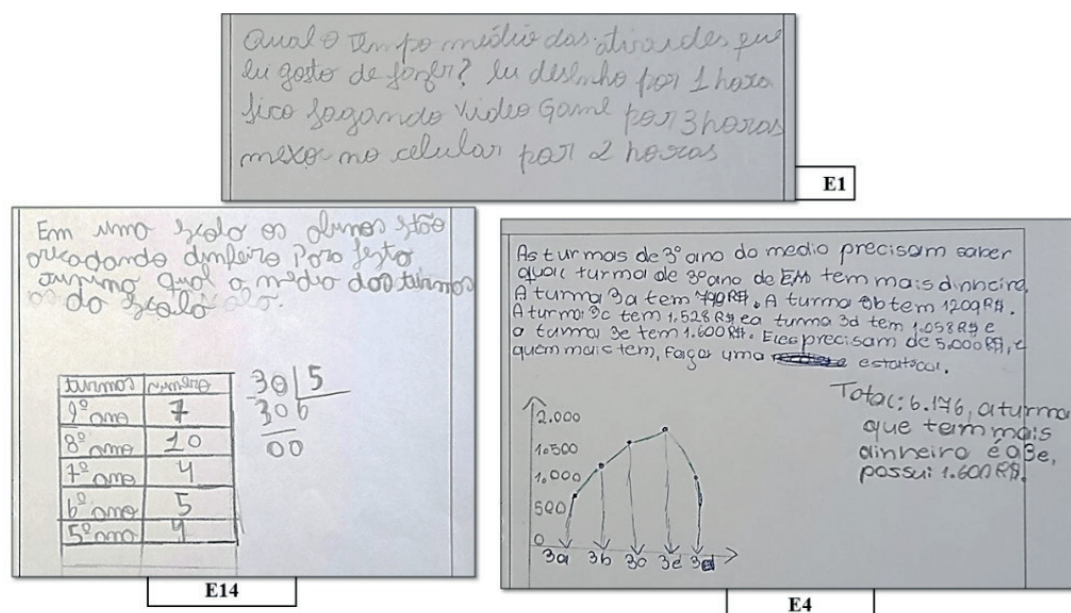 Qual o tempo médio das ativardes que
eu gosto de fazer? eu desenho por 1 hora
fico jogando video Game por 3 horas
mexo no celular por 2 horas
E1
Em uma escola os alunos estão
arecadando dinheiro para festa
junina qual a media das turmas
da escola
turmas numero
9º ano 7
8º ano 10
7º ano 4
6º ano 5
5º ano 4
30 5
30 6
00
E14
As turmas de 3º ano do medio precisam saber
qual turma de 3º ano de EM tem mais dinheiro.
A turma 3a tem 790R$. A turma 3b tem 1200R$.
A turma 3c tem 1.528R$ e a turma 3d tem 1.058R$ e
a turma 3e tem 1.600R$. Eles precisam de 5.000R$, e
quem mais tem, faça uma estatscai.
Total: 6.176, a turma
que tem mais
dinheiro é a 3e,
possui 1.600R$.
2.000
1.500
1.000
500
0
3a 3b 3c 3e 3d
E4